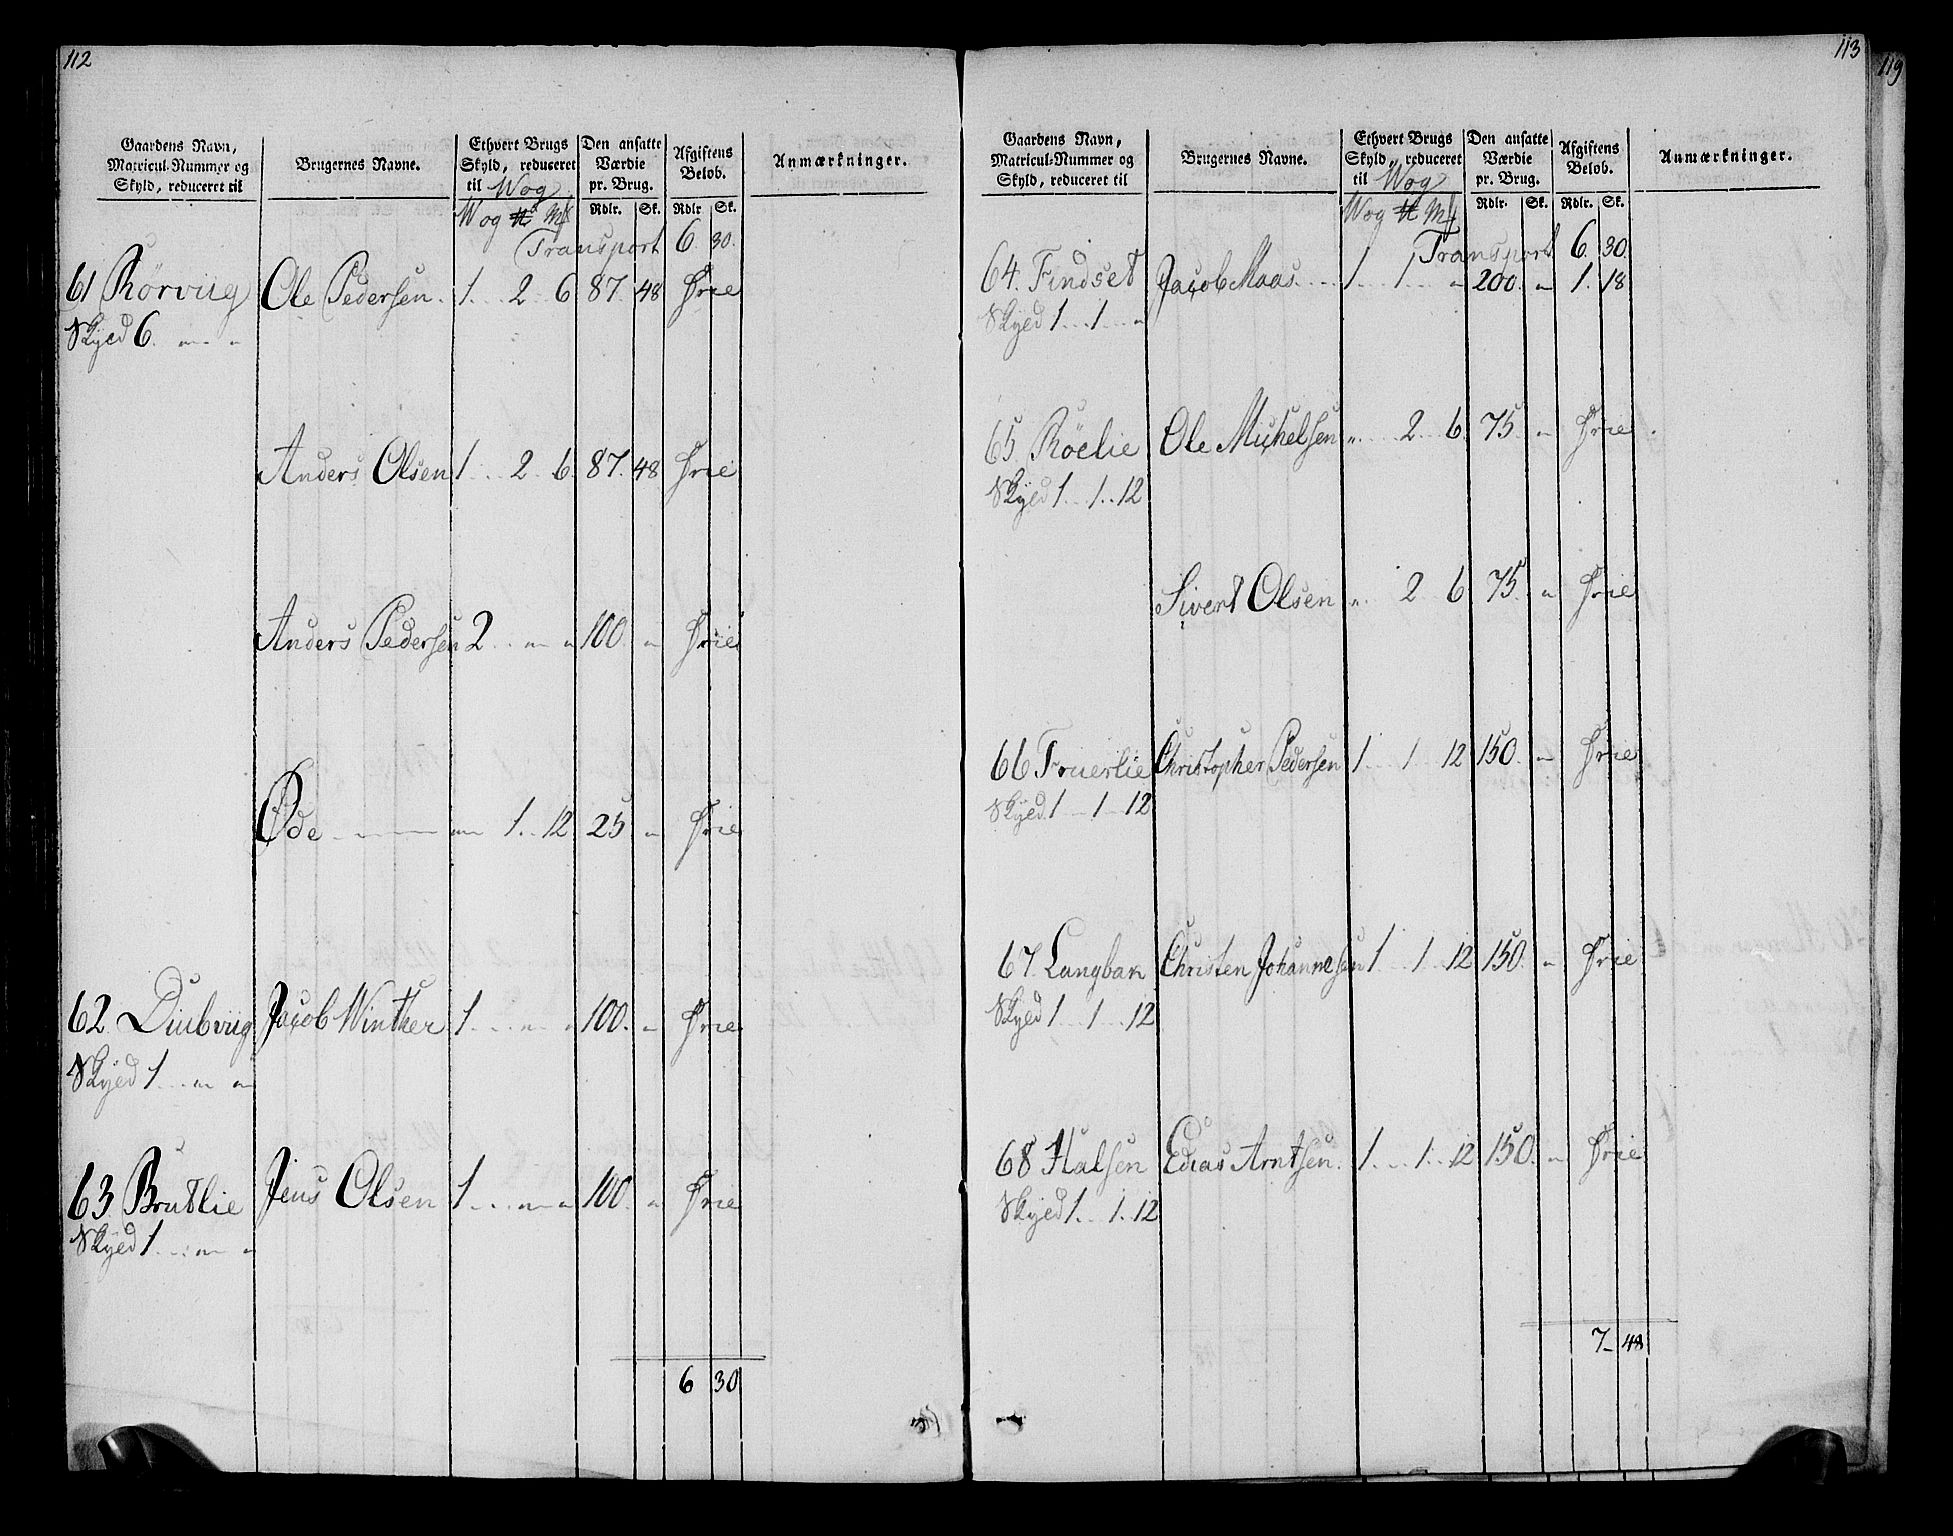 112
Gaardens Navn, Matricul-Nummer og Skyld, reduceret til
Brugernes Navne.
Ethvert Brugs Skyld, reduceret til Wog
Den ansatte Værdie pr. Brug.
Afgiftens Beløb.
Anmærkninger.
Wog ℔ Mk Rdlr. Sk. Rdlr Sk.
Transport 6. 30.
61 Rörviig Ole Pedersen. 1. 2 6 87. 48 Frie
Skyed 6. " "
Anders Olsen 1 2 6 87. 48 Frie
Anders Pedersen 2 " " 100. " Frie
Øde " 1. 12 25 " Frie
62. Diubviig Jacob Winther 1 " " 100. " Frie
Skyed 1 " "
63 Brutlie Jens Olsen 1 " " 100. " Frie
Skyed 1 " "
6 30
113
119
Gaardens Navn, Matricul-Nummer og Skyld, reduceret til
Brugernes Navne.
Ethvert Brugs Skyld, reduceret til Wog
Den ansatte Værdie pr. Brug.
Afgiftens Beløb.
Anmærkninger.
Wog ℔ Mk Rdlr. Sk. Rdlr. Sk.
Transport 6. 30.
64. Findset Jacob Maas 1 1 " 200. " 1. 18
Skyed 1 1 "
65. Röelie Ole Michelsen " 2 6 75. " Frie
Skyed 1 1 12
Sivert Olsen " 2 6 75. " Frie
66 Fruerlie Christopher Pedersen 1 1 12 150. " Frie
Skyed 1 1 12
67. Langbak Christen Johannesen 1 1 12 150. " Frie
Skyed 1 1 12
68 Halsen Edias Arntsen. 1 1. 12 150. " Frie
Skyed 1. 1. 12
7 48